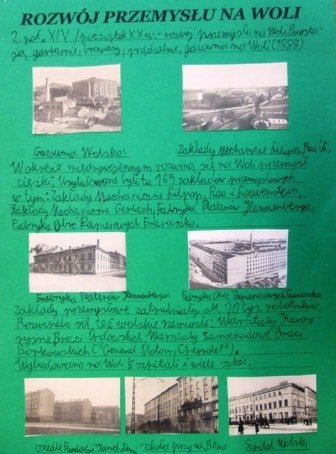 ROZWÓJ PRZEMYSŁU NA WOLI
2 poł. XIX/początek XX w. - rozwój przemysłu na Woli. Powsta-
ją garbarnie, browary, przędzalnie, gazownia na Woli (1888)
Gazownia Wolska. Zakłady Mechaniczne Lilpop, Rau i L.
W okresie międzywojennym rozwinął się na Woli przemysł
ciężki. Wybudowane było tu 169 zakładów przemysłowych
w tym: Zakłady Mechaniczne Lilpop, Rau i Loewenstein,
Zakłady Mechaniczne Gerlach, Fabryka Platerów Hennenberga,
Fabryka Obić Papierowych Franaszka.
Fabryka Platerów Hennenberga Fabryka Obić Papierowych Franaszka
Zakłady przemysłowe zatrudniały ok. 20 tys. robotników.
Rozwinęło się też wolskie rzemiosło: Warsztaty Karo-
seryjne Braci
Warsztaty Samochodowe Braci
Borkowskich ("General Motors, Chevrolet").
Wybudowano na Woli 5 szpitali i wiele szkół.
osiedle szkoła przy ul. Szpital Wolski